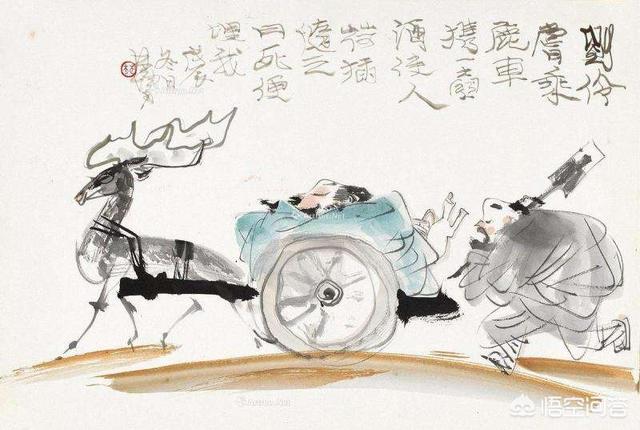 劉伶
嘗乘
鹿車
攜一壺
酒使人
荷插
隨之
曰死便
埋我
冬月
悟空问答